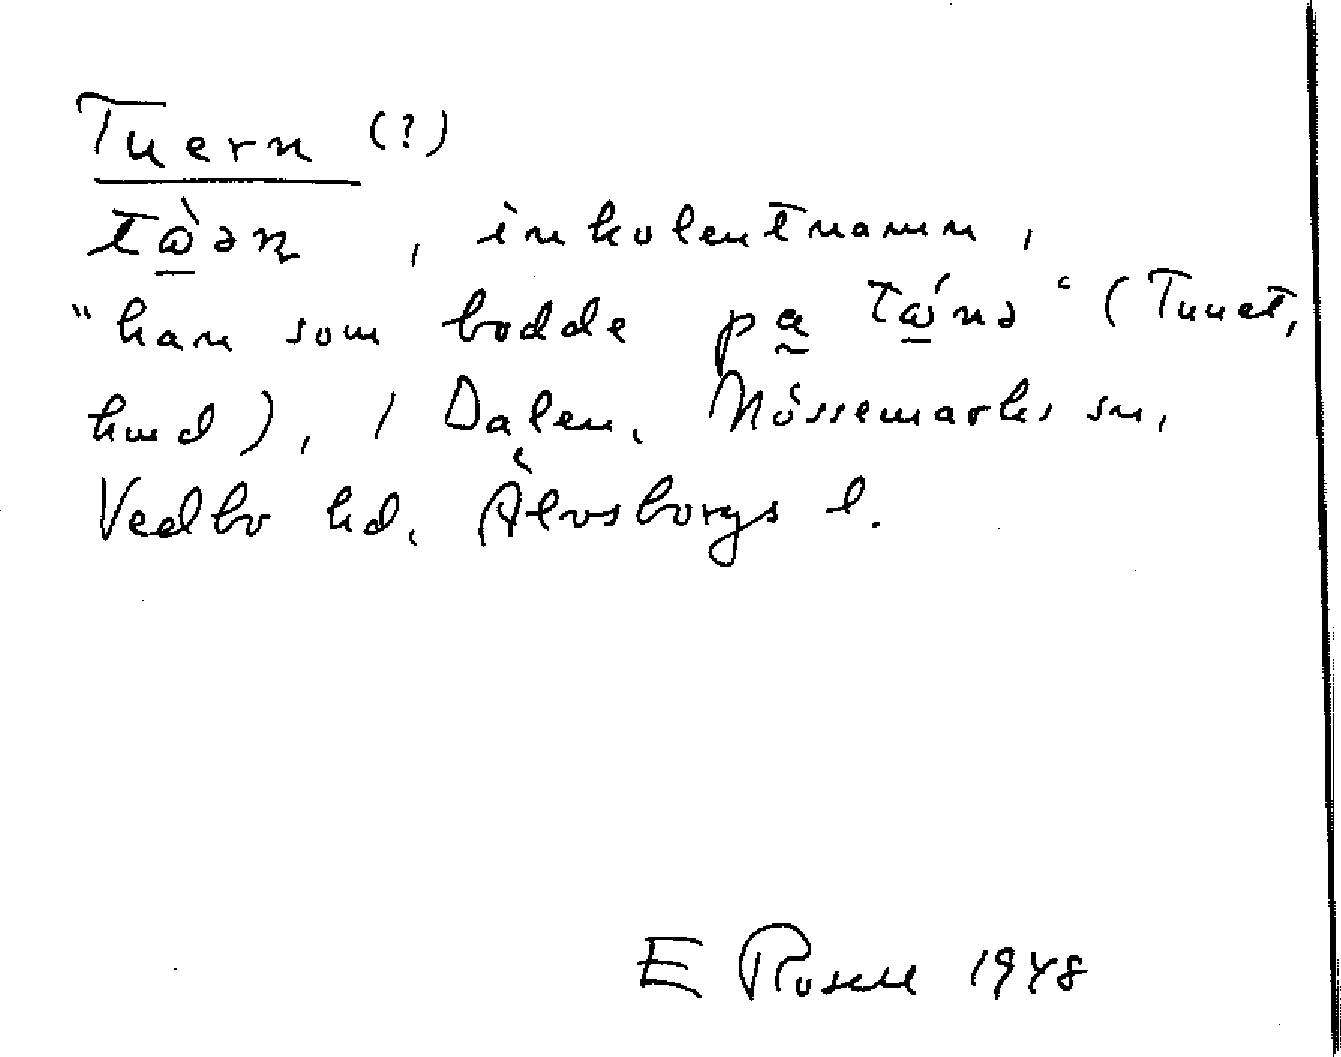 Tuern (?)
tὼ̲ən, inkolentnamn,
"han som bodde pa̰ tώ̲nə" (Tunet,
hmd), / Dalen. Nössemarks sn,
Vedbo hd. Älvsborgs l.
E Rosell 1948